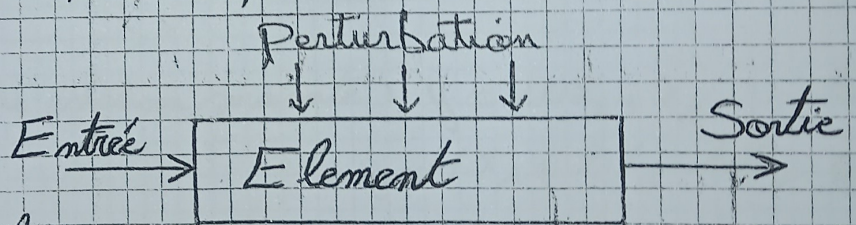 Perturbation
Entrée
Element
Sortie